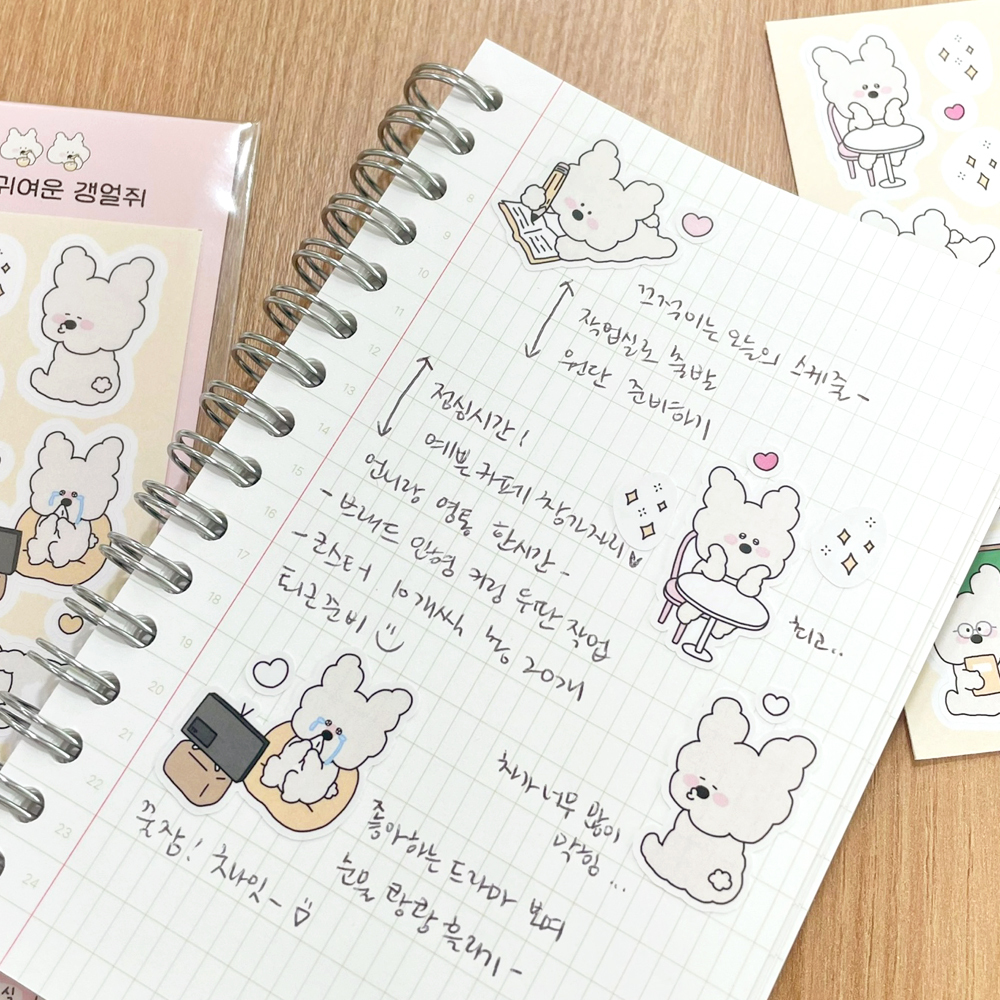 귀여운 갱얼쥐
8
9
10
11
12
13
14
15
16
17
18
19
20
22
23
24
끄적이는 오늘의 스케줄~
작업실로 출발
원단 준비하기
점심시간!
예쁜 카페 창가자리
언니랑 영통 한시간~
- 브래드 인형 키링 원단 작업
- 코스터 10개씩 총 20개
퇴근준비
최고..
차가 너무 많이
막힘...
좋아하는 드라마 보며
눈물 콸콸 흘리기~
꿀잠! 굿나잇~